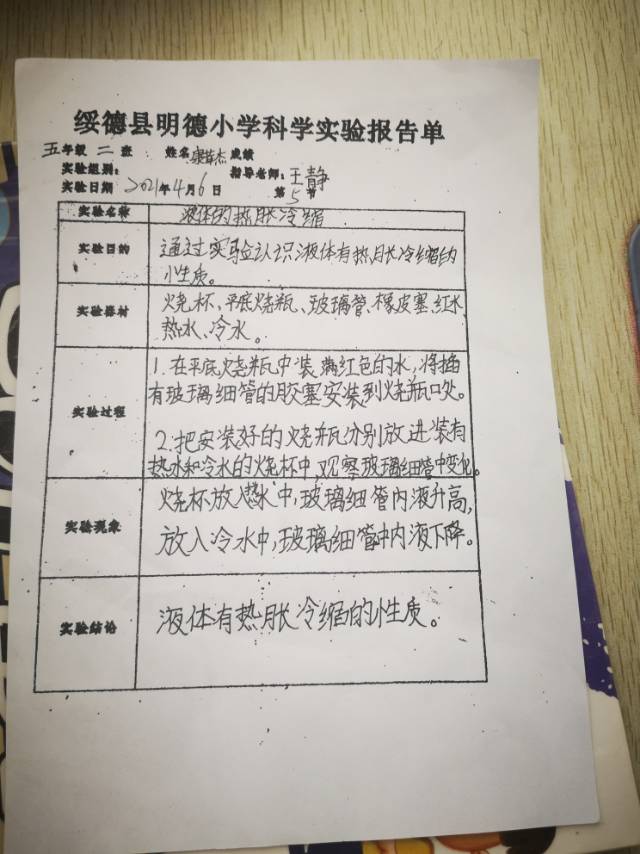 绥德县明德小学科学实验报告单
五年级 二 班 姓名 成绩
实验组别： 指导老师：王静
实验日期 2021年4月6日 第5节
实验名称 液体的热胀冷缩
实验目的 通过实验认识液体有热胀冷缩的
性质。
实验器材 烧杯、平底烧瓶、玻璃管、橡皮塞、红水、
热水、冷水。
实验过程 1.在平底烧瓶中装满红色的水，将插
有玻璃细管的胶塞安装到烧瓶口处。
2.把安装好的烧瓶分别放进装有
热水和冷水的烧杯中，观察玻璃细管中变化。
实验现象 烧杯放入热水中，玻璃细管内液升高，
放入冷水中，玻璃细管中内液下降。
实验结论 液体有热胀冷缩的性质。